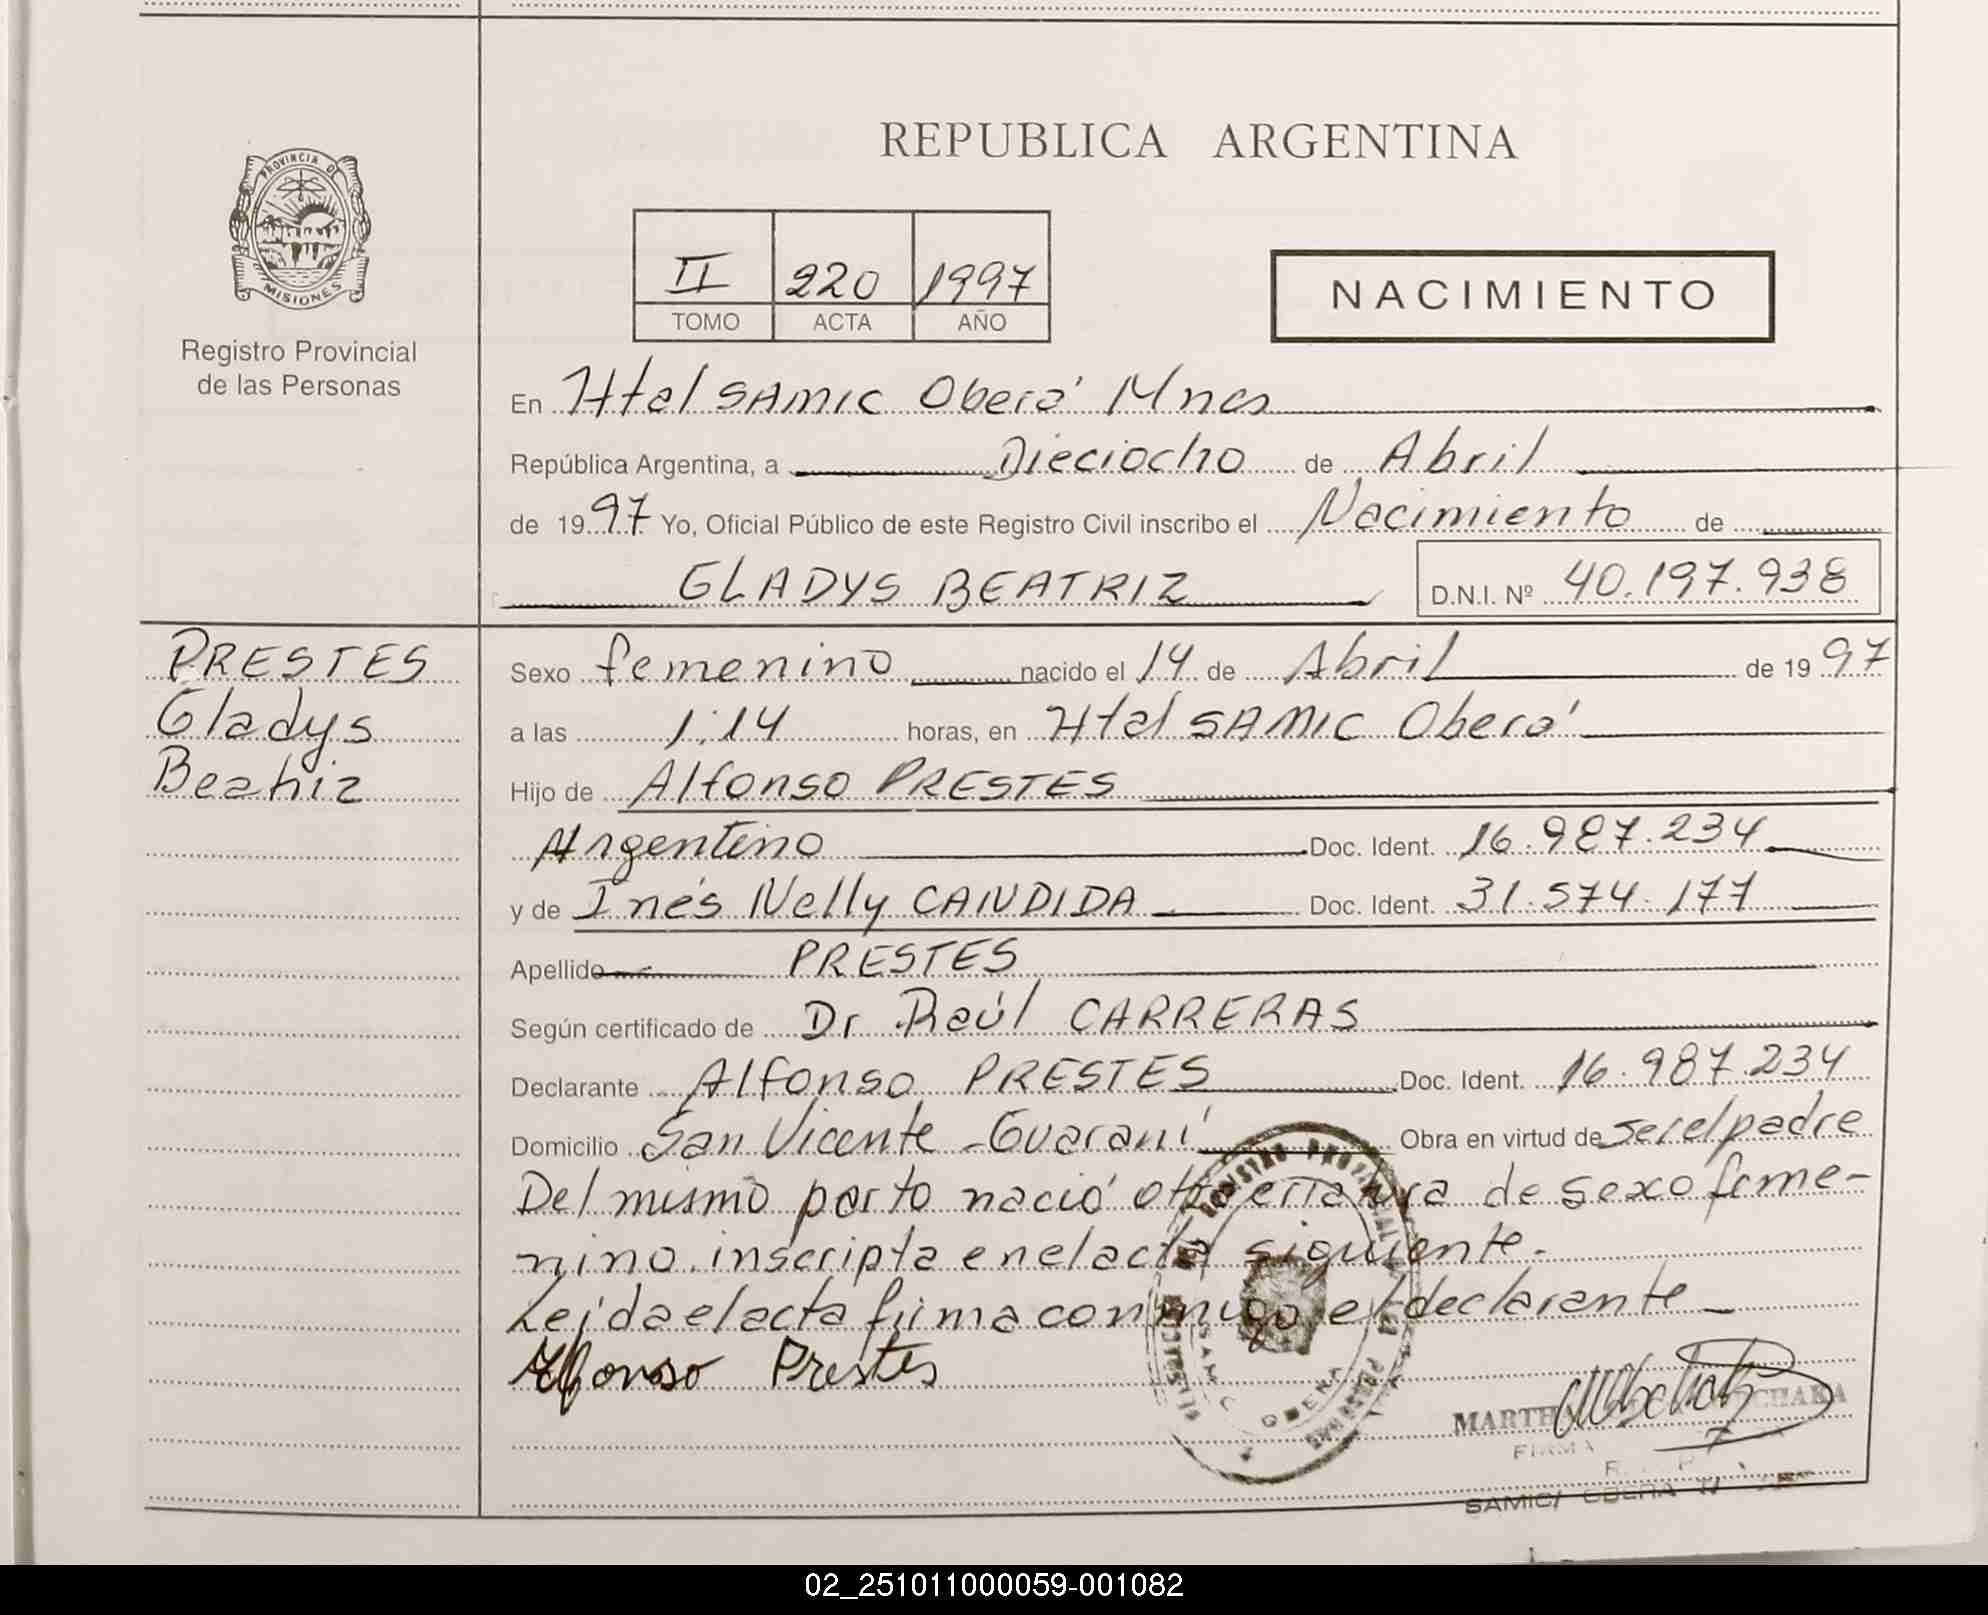 REPUBLICA ARGENTINA
PROVINCIA DE
MISIONES
Registro Provincial
de las Personas
II 220 1997
TOMO ACTA AÑO
NACIMIENTO
En Htal SAMIC Oberá Mnes
República Argentina, a Dieciocho de Abril
de 1997 Yo, Oficial Público de este Registro Civil inscribo el Nacimiento de
GLADYS BEATRIZ D.N.I. Nº 40.197.938
PRESTES
Gladys
Beatriz
Sexo femenino nacido el 14 de Abril de 1997
a las 1:14 horas, en Htal SAMIC Oberá
Hijo de Alfonso PRESTES
Argentino Doc. Ident. 16.987.234
y de Inés Nelly CANDIDA Doc. Ident. 31.574.177
Apellido PRESTES
Según certificado de Dr Raúl CARRERAS
Declarante Alfonso PRESTES Doc. Ident. 16.987.234
Domicilio San Vicente - Guaraní Obra en virtud de ser el padre
Del mismo parto nació otra criatura de sexo feme-
nino inscripta en el acta siguiente.
Leída el acta firma conmigo el declarante
Alfonso Prestes
REGISTRO PROVINCIAL DE LAS PERSONAS
SAMIC OBERA
MARTHA
FIRMA
SAMIC/ OBERA
02_251011000059-001082